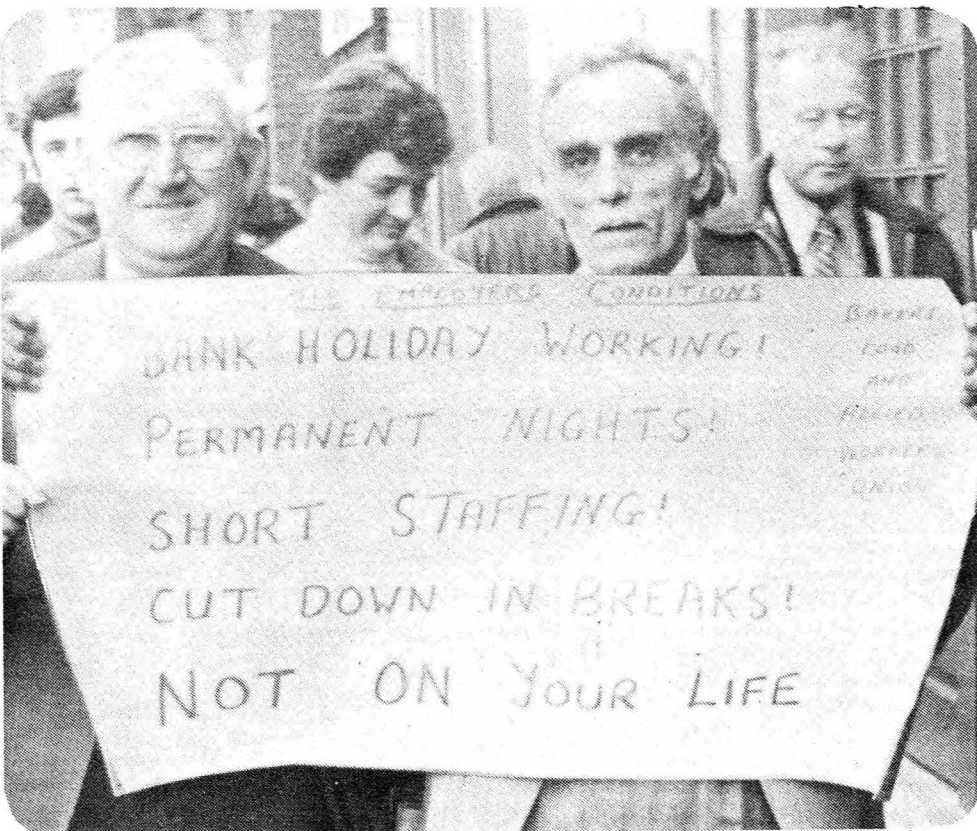 THE EMPLOYERS CONDITIONS
BANK HOLIDAY WORKING!
PERMANENT NIGHTS!
SHORT STAFFING!
CUT DOWN IN BREAKS!
NOT ON YOUR LIFE
BAKERS
FOOD
AND
ALLIED
WORKERS
UNION